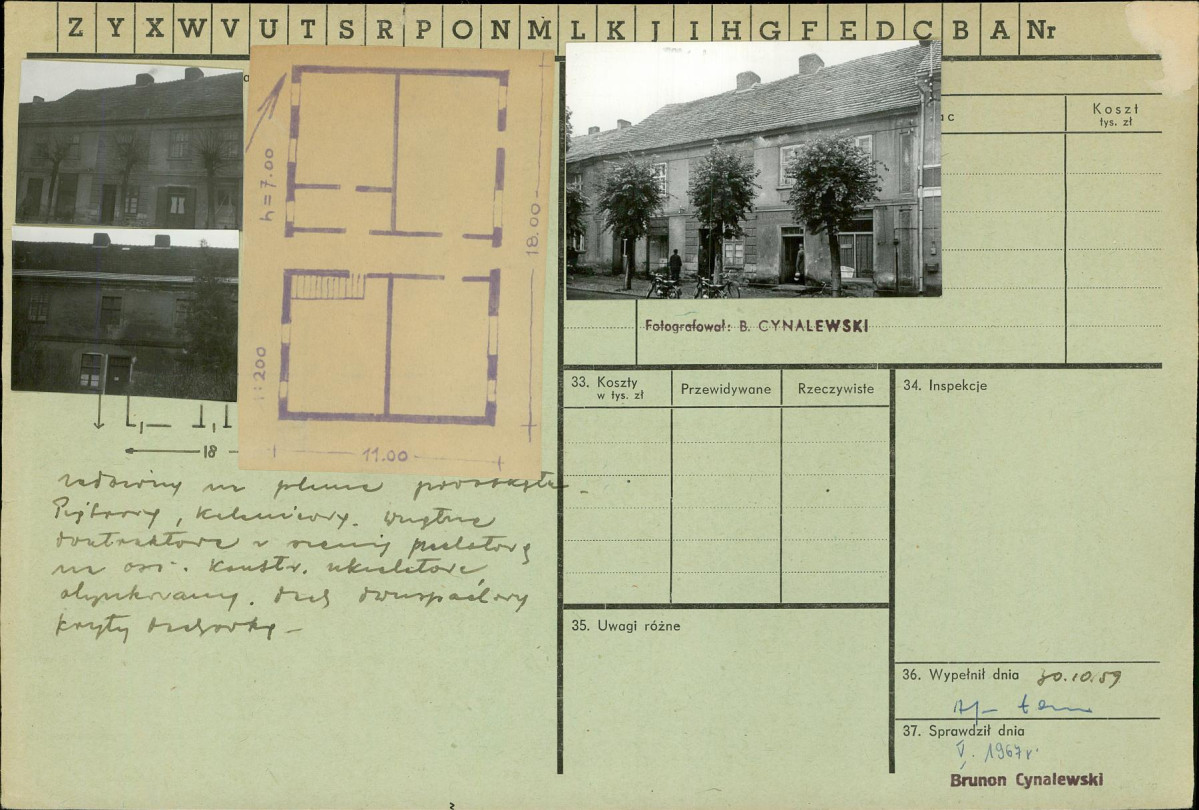 Z Y X W V U T S R P O N M L K J I H G F E D C B A Nr
ac
Koszt
tys. zł
h=7.00
18.00
1:200
11.00
18
Fotografował: B. CYNALEWSKI
na planie
Piętrowy, kalenicowy. Wnętrze
dwutraktowe z sienią przelotową
na osi. Konstr.
otynkowany. Dach dwuspadowy
kryty dachówką
33. Koszty
w tys. zł
Przewidywane
Rzeczywiste
34. Inspekcje
35. Uwagi różne
36. Wypełnił dnia 30.10.59
37. Sprawdził dnia
V. 1967 r
Brunon Cynalewski